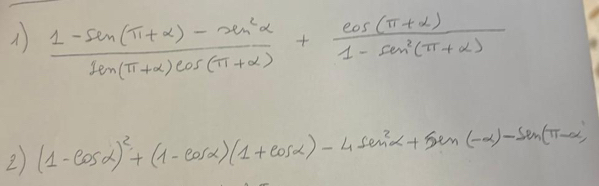 1) (1 - sen(π+α) - sen²α) / (sen(π+α) cos(π+α)) + cos(π+α) / (1 - sen²(π+α))
2) (1 - cosα)² + (1 - cosα)(1 + cosα) - 4 sen²α + sen(-α) - sen(π-α)